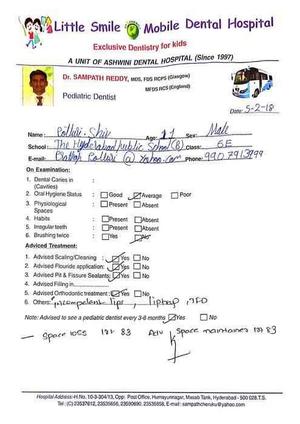 Little Smile Mobile Dental Hospital
Exclusive Dentistry for kids
A UNIT OF ASHWINI DENTAL HOSPITAL (Since 1997)
Dr. SAMPATH REDDY, MDS, FDS RCPS (Glasgow)
MFDS RCS (England)
Pediatric Dentist
Date: 5-2-18
Name: Polluri. Shiv Age: 11 Sex: Male
School: The Hyderabad Public School (B) Class: 6E
E-mail: @ Yahoo.com Phone:
On Examination:
1. Dental Caries in :
(Cavities)
2. Oral Hygiene Status : Good Average Poor
3. Physiological : Present Absent
Spaces
4. Habits : Present Absent
5. Irregular teeth : Present Absent
6. Brushing twice : Yes No
Adviced Treatment:
1. Advised Scaling/Cleaning : Yes No
2. Advised Flouride application: Yes No
3. Advised Pit & Fissure Sealants: Yes No
4. Advised Filling in
5. Advised Orthodontic treatment : Yes No
6. Others: incompetent lips,
Advised to see a pediatric dentist every 3-6 months Yes No
— Space loss 83 Adv space maintainer 83
Hospital Address: H.No. 10-3-304/13, Opp: Post Office, Humayunnagar, Masab Tank, Hyderabad - 500 028.T.S.
Tel: (C) 23537612, 23535656, 23590690, E-mail: sampathcheruku@yahoo.com